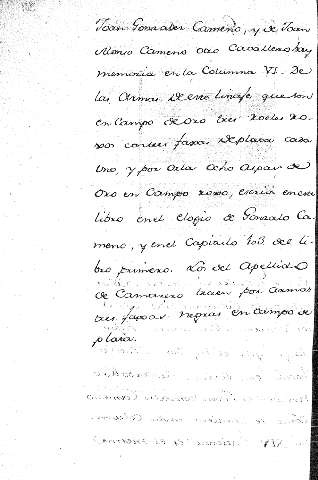 Joan Gonzalez Cameno, y de Joan
Alonso Cameno otro Cavallero hay
memoria en la Columna VI. De
las Armas De este linaje, que son
en Campo de oro tres Roeles Ro-
xos con tres faxas De plata cada
uno, y por orla ocho Aspas de
oro en Campo roxo, escrivi en este
libro en el elogio de Gonzalo Ca-
meno, y en el Capitulo 103. del li-
bro primero. Los del Apellido
de Camarero traen por armas
tres faxas negras en campo de
plata.